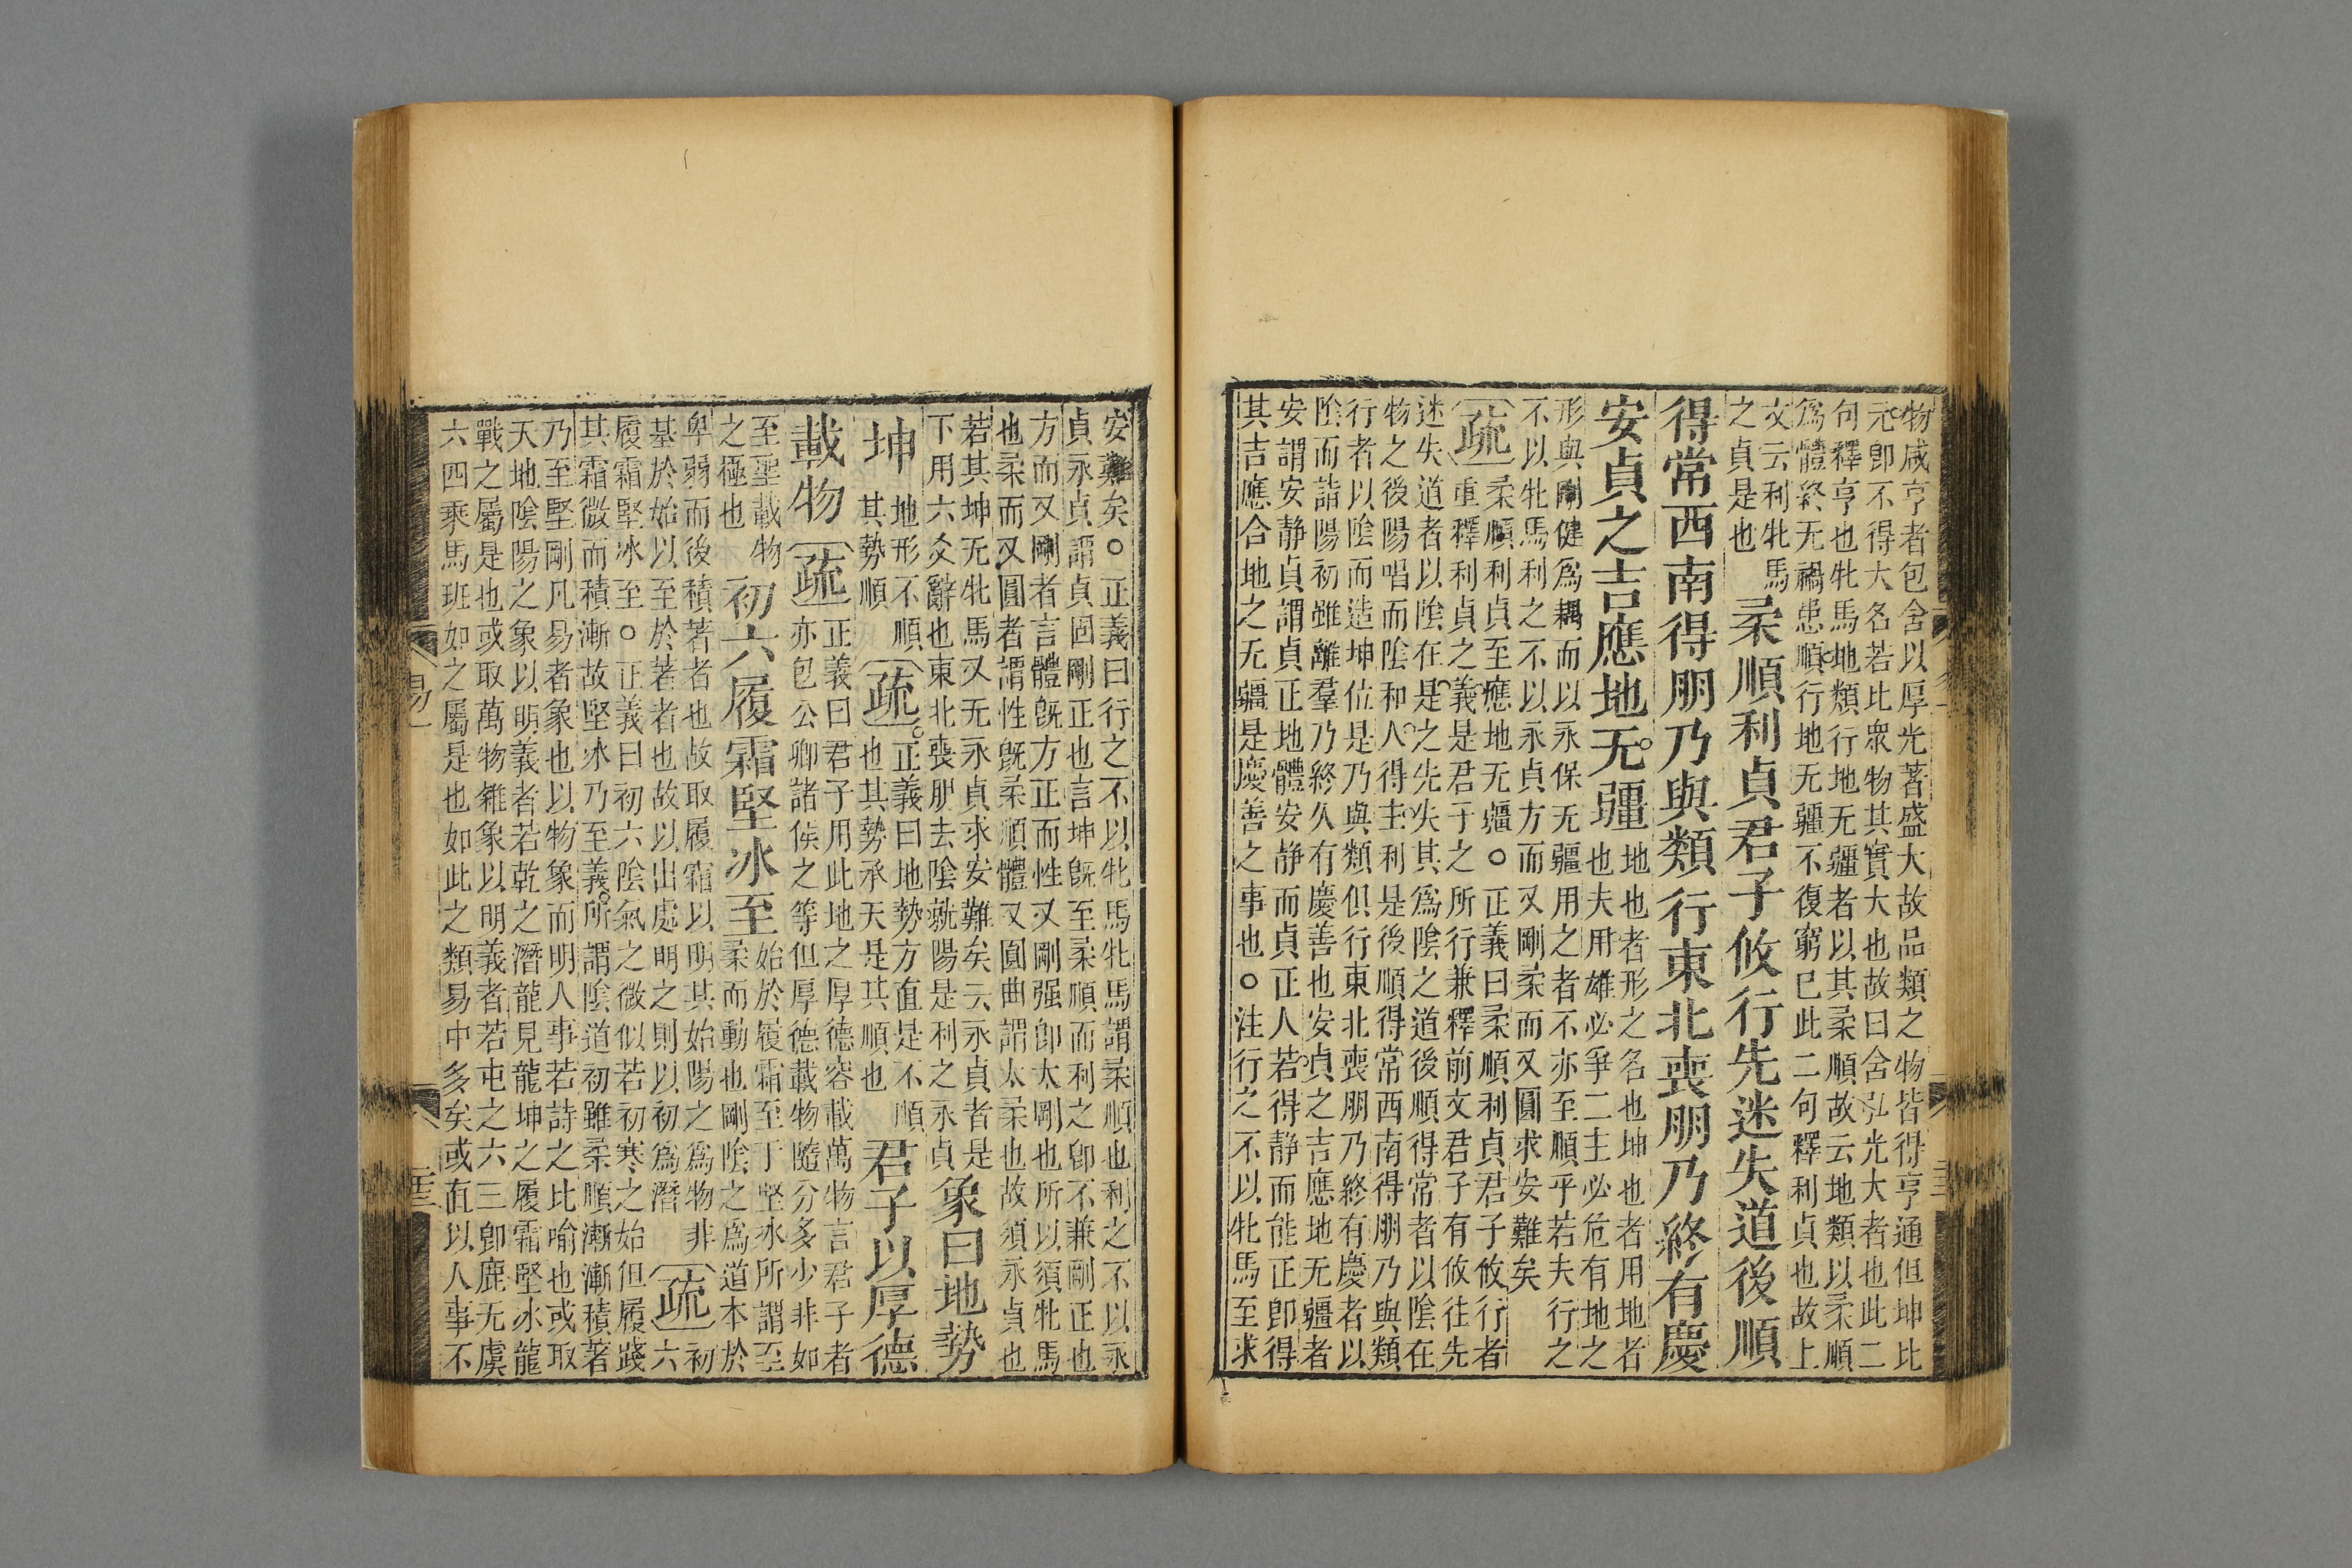 物咸亨者包含以厚光著盛大故品類之物皆得亨通但坤比
元卽不得大名若比衆物其實大也故曰含弘光大者也此二
句釋亨也牝馬地類行地无疆者以其柔順故云地類以柔順
爲體終无禍患順行地无疆不復窮已此二句釋利貞也故上
文云利牝馬
之貞是也
柔順利貞君子攸行先迷失道後順
得常西南得朋乃與類行東北喪朋乃終有慶
安貞之吉應地无疆
地也者形之名也坤也者用地者
也夫用雄必爭二主必危有地之
形與剛健爲耦而以永保无疆用之者不亦至順乎若夫行之
不以牝馬利之不以永貞方而又剛柔而又圓求安難矣
疏
柔順利貞至應地无疆○正義曰柔順利貞君子攸行者
重釋利貞之義是君子之所行兼釋前文君子有攸往先
迷失道者以陰在是之先失其爲陰之道後順得常者以陰在
物之後陽唱而陰和人得主利是後順得常西南得朋乃與類
行者以陰而造坤位是乃與類俱行東北喪朋乃終有慶者以
陰而詣陽初雖離羣乃終久有慶善也安貞之吉應地无疆者
安謂安靜貞謂貞正地體安靜而貞正人若得靜而能正卽得
其吉應合地之无疆是慶善之事也○注行之不以牝馬至求
安難矣○正義曰行之不以牝馬牝馬謂柔順也利之不以永
貞永貞謂貞固剛正也言坤旣至柔順而利之卽不兼剛正也
方而又剛者言體旣方正而性又剛强卽太剛也所以須牝馬
也柔而又圓者謂性旣柔順體又圓曲謂太柔也故須永貞也
若其坤无牝馬又无永貞求安難矣云永貞者是
下用六爻辭也東北喪朋去陰就陽是利之永貞
象曰地勢
坤
地形不順
其勢順
疏
正義曰地勢方直是不順
也其勢承天是其順也
君子以厚德
載物
疏
正義曰君子用此地之厚德容載萬物言君子者
亦包公卿諸侯之等但厚德載物隨分多少非如
至聖載物
之極也
初六履霜堅冰至
始於履霜至于堅冰所謂至
柔而動也剛陰之爲道本於
卑弱而後積著者也故取履霜以明其始陽之爲物非
基於始以至於著者也故以出處明之則以初爲潛
疏
初
六
履霜堅冰至○正義曰初六陰氣之微似若初寒之始但履踐
其霜微而積漸故堅冰乃至義所謂陰道初雖柔順漸漸積著
乃至堅剛凡易者象也以物象而明人事若詩之比喻也或取
天地陰陽之象以明義者若乾之潛龍見龍坤之履霜堅冰龍
戰之屬是也或取萬物雜象以明義者若屯之六三卽鹿无虞
六四乘馬班如之屬是也如此之類易中多矣或直以人事不
易一